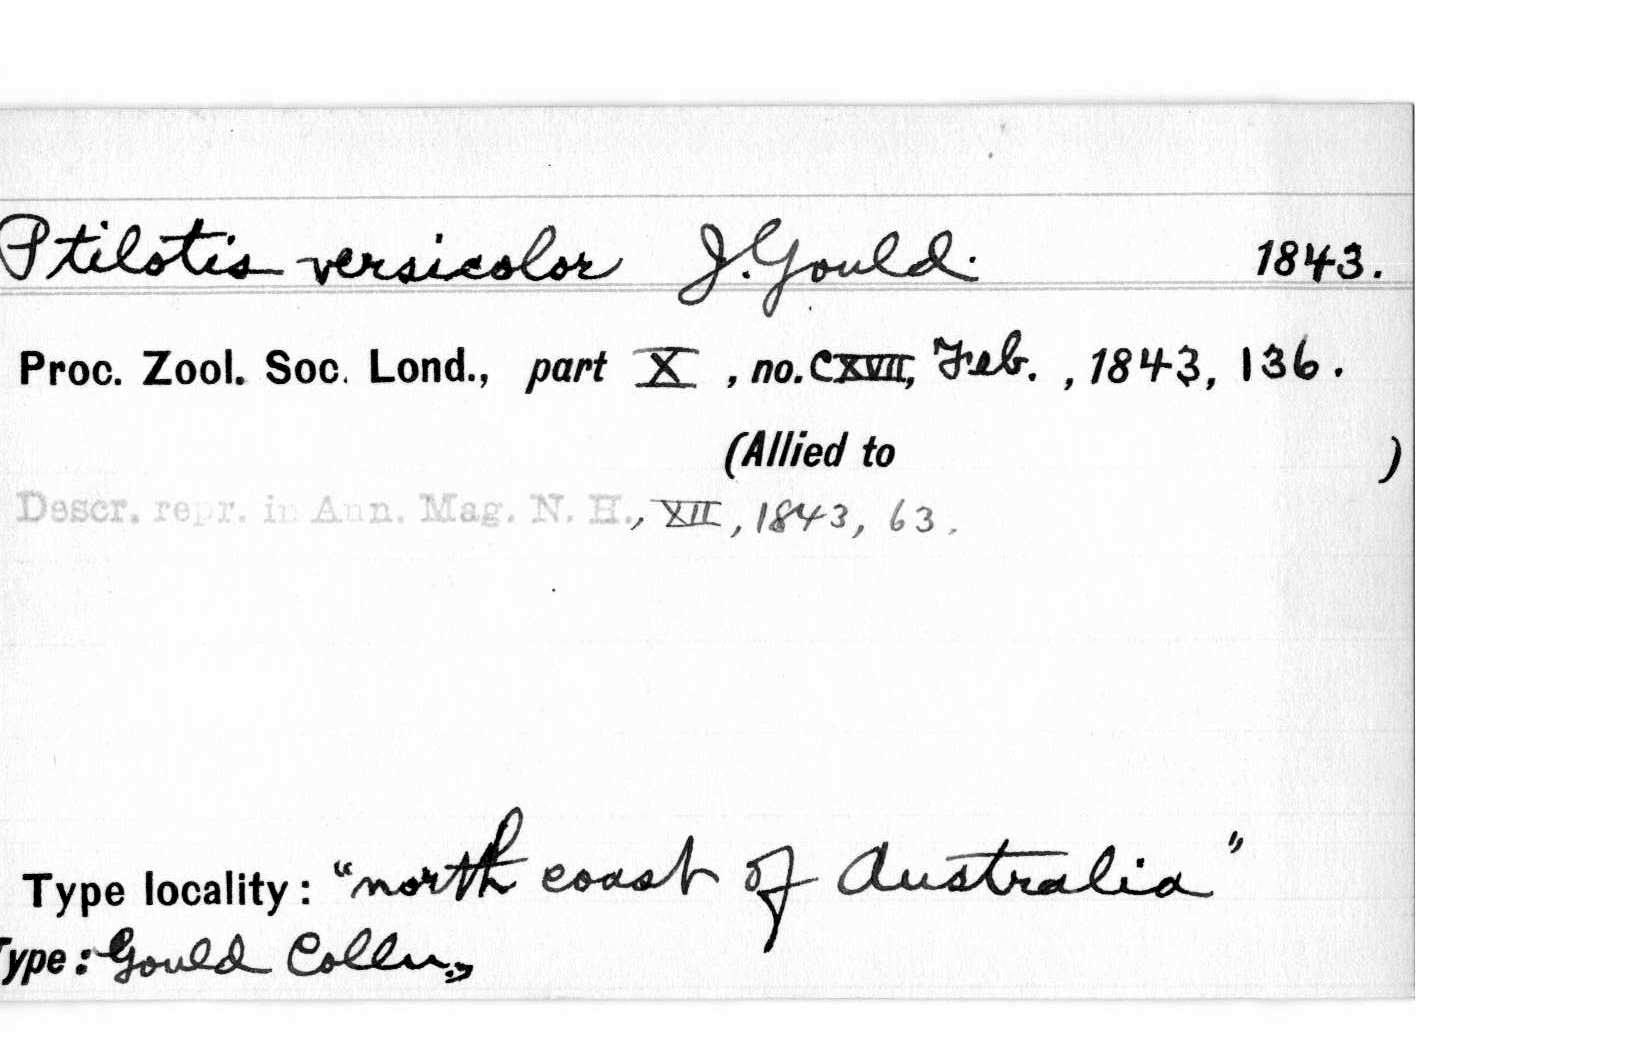 Ptilotis versicolor J. Gould. 1843.
Proc. Zool. Soc. Lond., part X, no. CXVII, Feb., 1843, 136.
(Allied to )
Descr. repr. in Ann. Mag. N. H., XII, 1843, 63.
Type locality: "north coast of Australia"
Type: Gould Colln.,